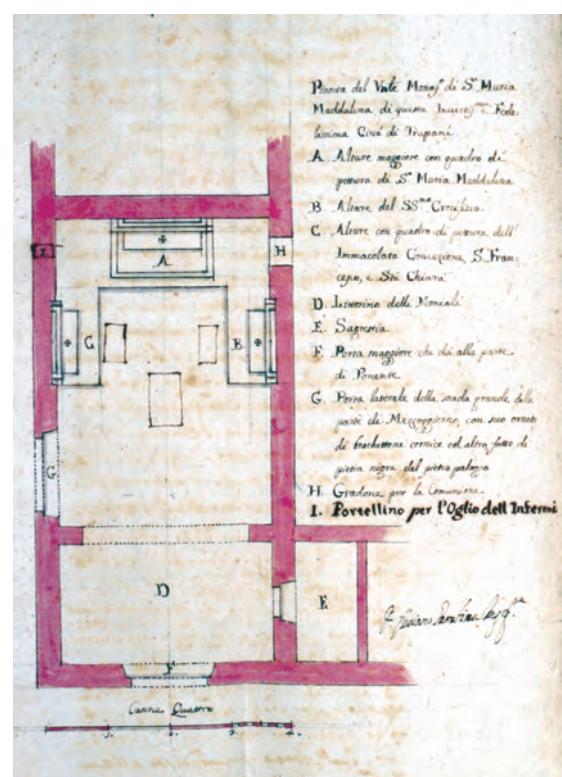 Pianta del Vnle Monas.º di S.ª Maria
Maddalena di questa Invittis.ma e Fede-
lissima Città di Trapani
A. Altare maggiore con quadro di
pittura di S.ª Maria Maddalena
B. Altare del SS.mo Crocifisso.
C. Altare con quadro di pittura dell'
Immacolata Concezione, S. Fran-
cesco, e Sta Chiara
D. delle Moniali
E. Sagrestia
F. Porta maggiore che dà alla parte
di Ponente
G. Porta laterale della strada grande dalla
parte di Mezzogiorno, con suo ornato
di cornice ed altro fatto di
pietra nigra del pietra palazzo
H. Gradone per la Comunione.
I. Portellino per l'Oglio dell Infermi
I.
A
H
C
B
G
D
E
F
Canne Quattro
1. 2. 3. 4.